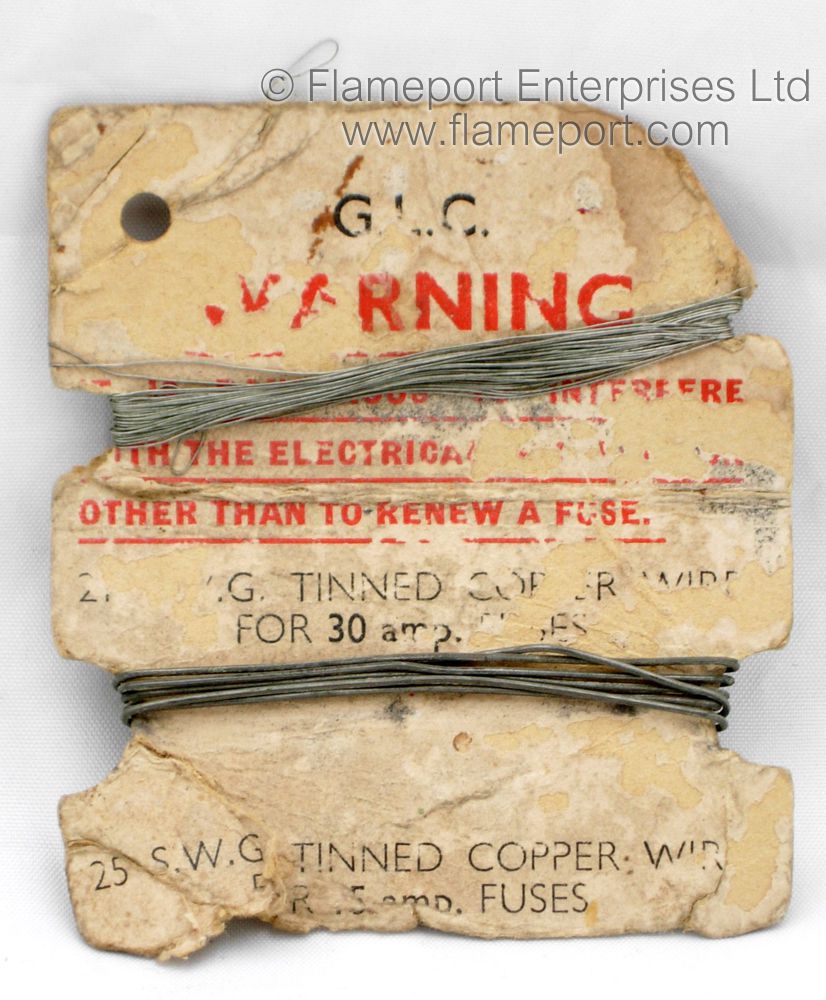 © Flameport Enterprises Ltd
www.flameport.com
G.L.C.
WARNING
INTERFERE
WITH THE ELECTRICAL
OTHER THAN TO RENEW A FUSE.
TINNED COPPER WIRE
FOR 30 amp. FUSES
25 S.W.G. TINNED COPPER WIR
FUSES